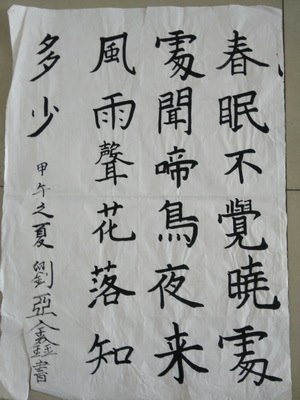 春眠不覺曉處
處聞啼鳥夜来
風雨聲花落知
多少
甲午之夏劉亞鑫書